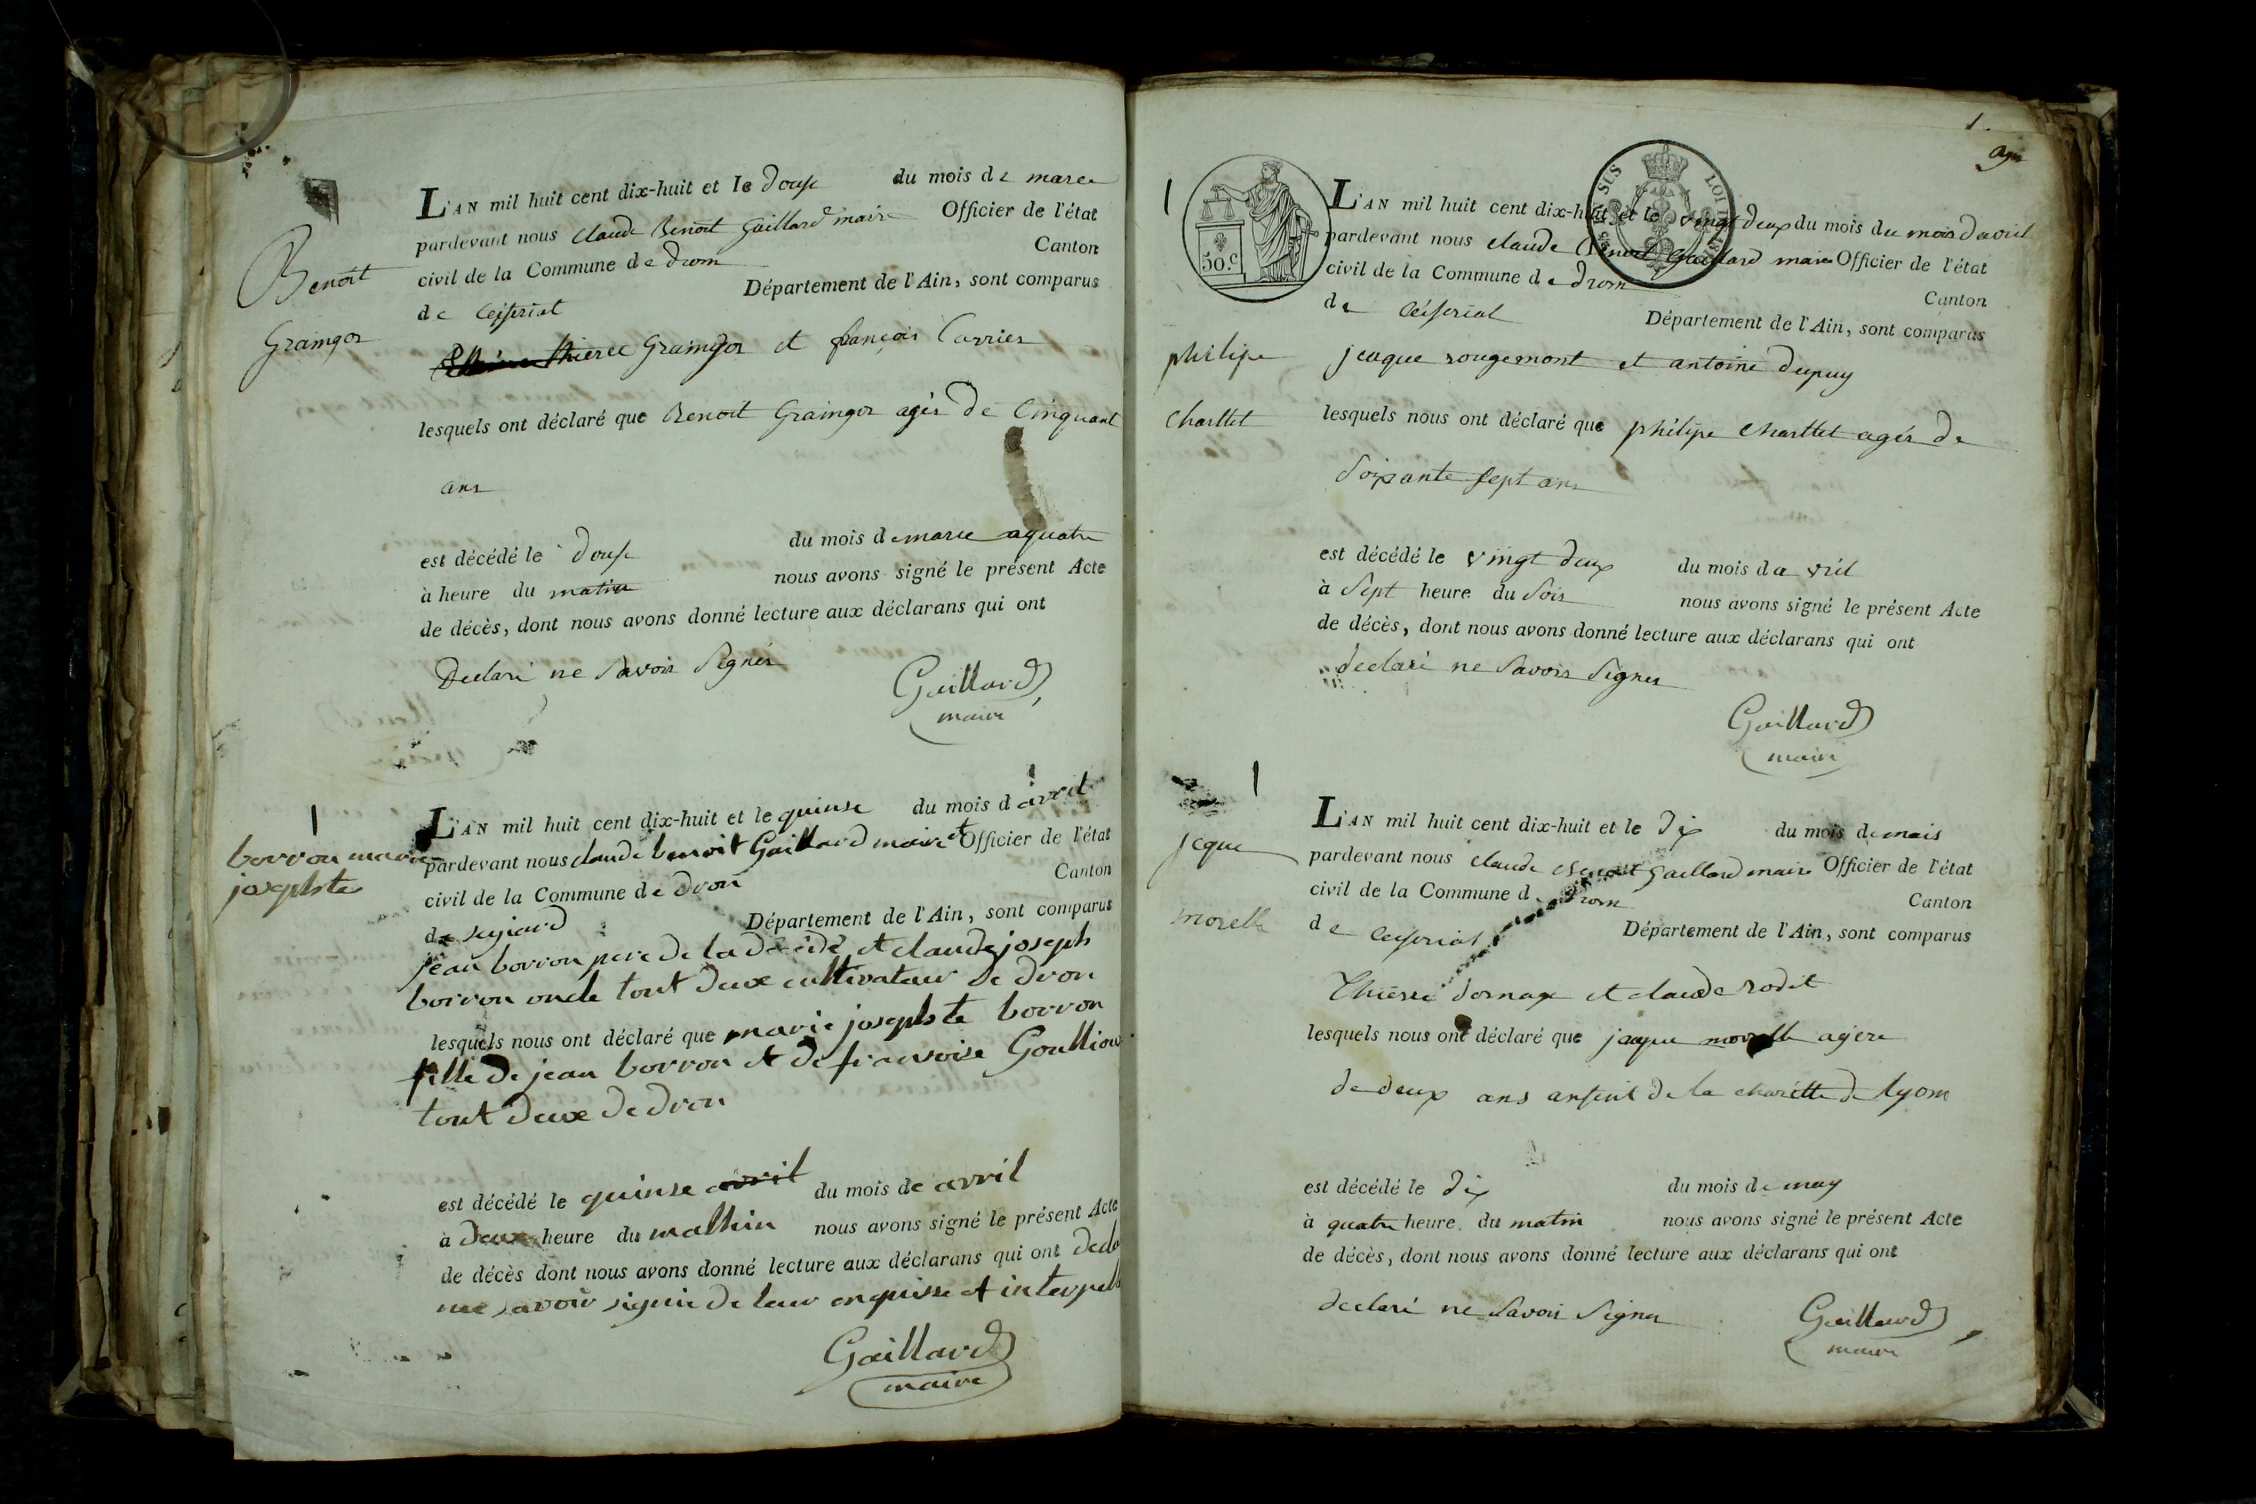 Benoit
Graingor
L'AN mil huit cent dix-huit et le douse du mois de marce
pardevant nous claude Benoit Gaillard maire Officier de l'état
civil de la Commune de drom Canton
de Ceiseriat Département de l'Ain, sont comparus
Graingor et françois Carrier
lesquels ont déclaré que Benoit Graingor agér de Cinquant
ans
est décédé le douse du mois de marce aquatre
à heure du matin nous avons signé le présent Acte
de décès, dont nous avons donné lecture aux déclarans qui ont
Declaré ne Savoir Signer
Gaillard
maire
borron marie
josephte
L'AN mil huit cent dix-huit et le quinse du mois d avril
pardevant nous claude benoit Gaillard maire et Officier de l'état
civil de la Commune de dron Canton
de Département de l'Ain, sont comparus
jean borron pere de la décédé et claude joseph
borron oncle tout deux cultivateur de dron
lesquels nous ont déclaré que marie josephte borron
fille de jean borron et de francoise
tout deux de dron
est décédé le quinse avril du mois de avril
à deux heure du mathin nous avons signé le présent Acte
de décès dont nous avons donné lecture aux déclarans qui ont
Gaillard
maire
1
50.c
L'AN mil huit cent dix-huit et le vingt deux du mois du mois davril
pardevant nous claude Benoit Gaillard maire Officier de l'état
civil de la Commune de drom Canton
de Ceiseriat Département de l'Ain, sont comparus
philipe
Charltet
jcaque rougemont et antoine dupuy
lesquels nous ont déclaré que philipe Charltet agér de
Soixante sept ans
est décédé le vingt deux du mois da vril
à Sept heure du Soir nous avons signé le présent Acte
de décès, dont nous avons donné lecture aux déclarans qui ont
declaré ne Savoir Signer
Gaillard
maire
jcque
morelle
L'AN mil huit cent dix-huit et le dix du mois de mais
pardevant nous claude Benoit Gaillard maire Officier de l'état
civil de la Commune de drom Canton
de Ceiseriat Département de l'Ain, sont comparus
Thierri dornax et claude rodet
lesquels nous ont déclaré que jaque morelle agere
de deux ans anfent de la charétte de lyom
est décédé le dix du mois de may
à quatre heure du matin nous avons signé le présent Acte
de décès, dont nous avons donné lecture aux déclarans qui ont
declaré ne Savoir Signer
Gaillard
maire